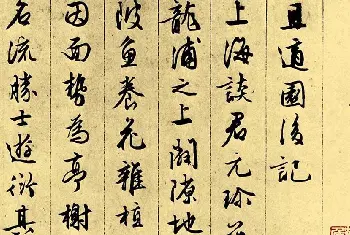 且適園後記
上海談君元珎
龍浦之上闢隙地
陂魚養花雜植
因面勢為亭榭
名流勝士遊衍其